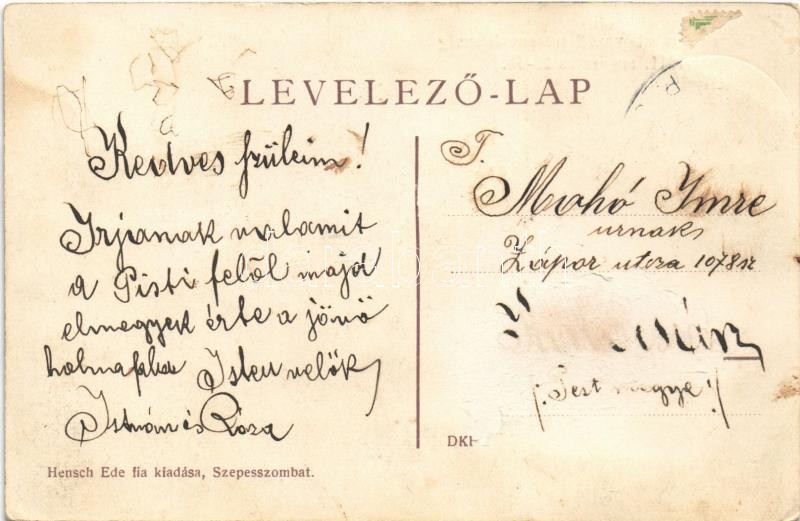 LEVELEZŐ-LAP
Kedves szüleim!
Irjanak valamit
a Pisti felöl majd
elmegyek érte a jövö
holnapba Isten velök
István és Róza
Hensch Ede fia kiadása, Szepesszombat.
T.
Mohó Imre
urnak
Zápor utcza 1078 sz
(Pest megye)
DKH